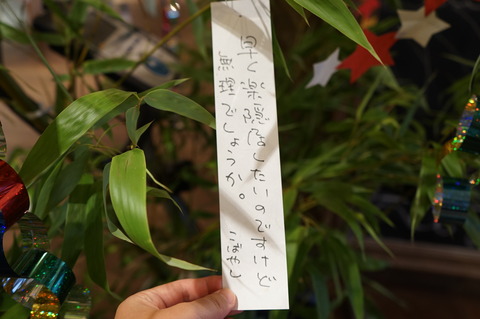 ・早く楽隠居したいのですけど
無理でしょうか。 こばやし